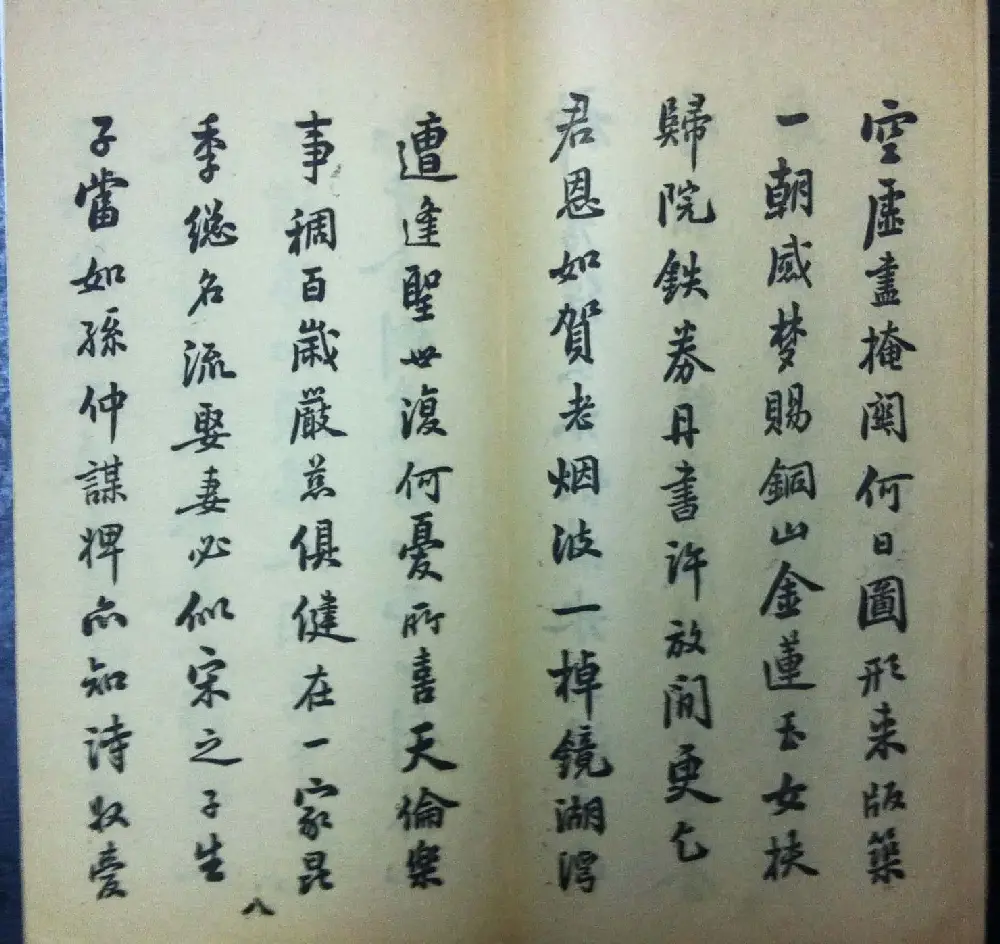 空虛盡掩關何日圖形来版築
一朝感梦賜銅山金蓮玉女扶
歸院鉄券丹書許放閒更乞
君恩如賀老烟波一棹鏡湖灣
遭逢聖世復何憂所喜天倫樂
事稠百歲嚴慈俱健在一家昆
季総名流娶妻必似宋之子生
子當如孫仲謀婢亦知詩奴愛
八